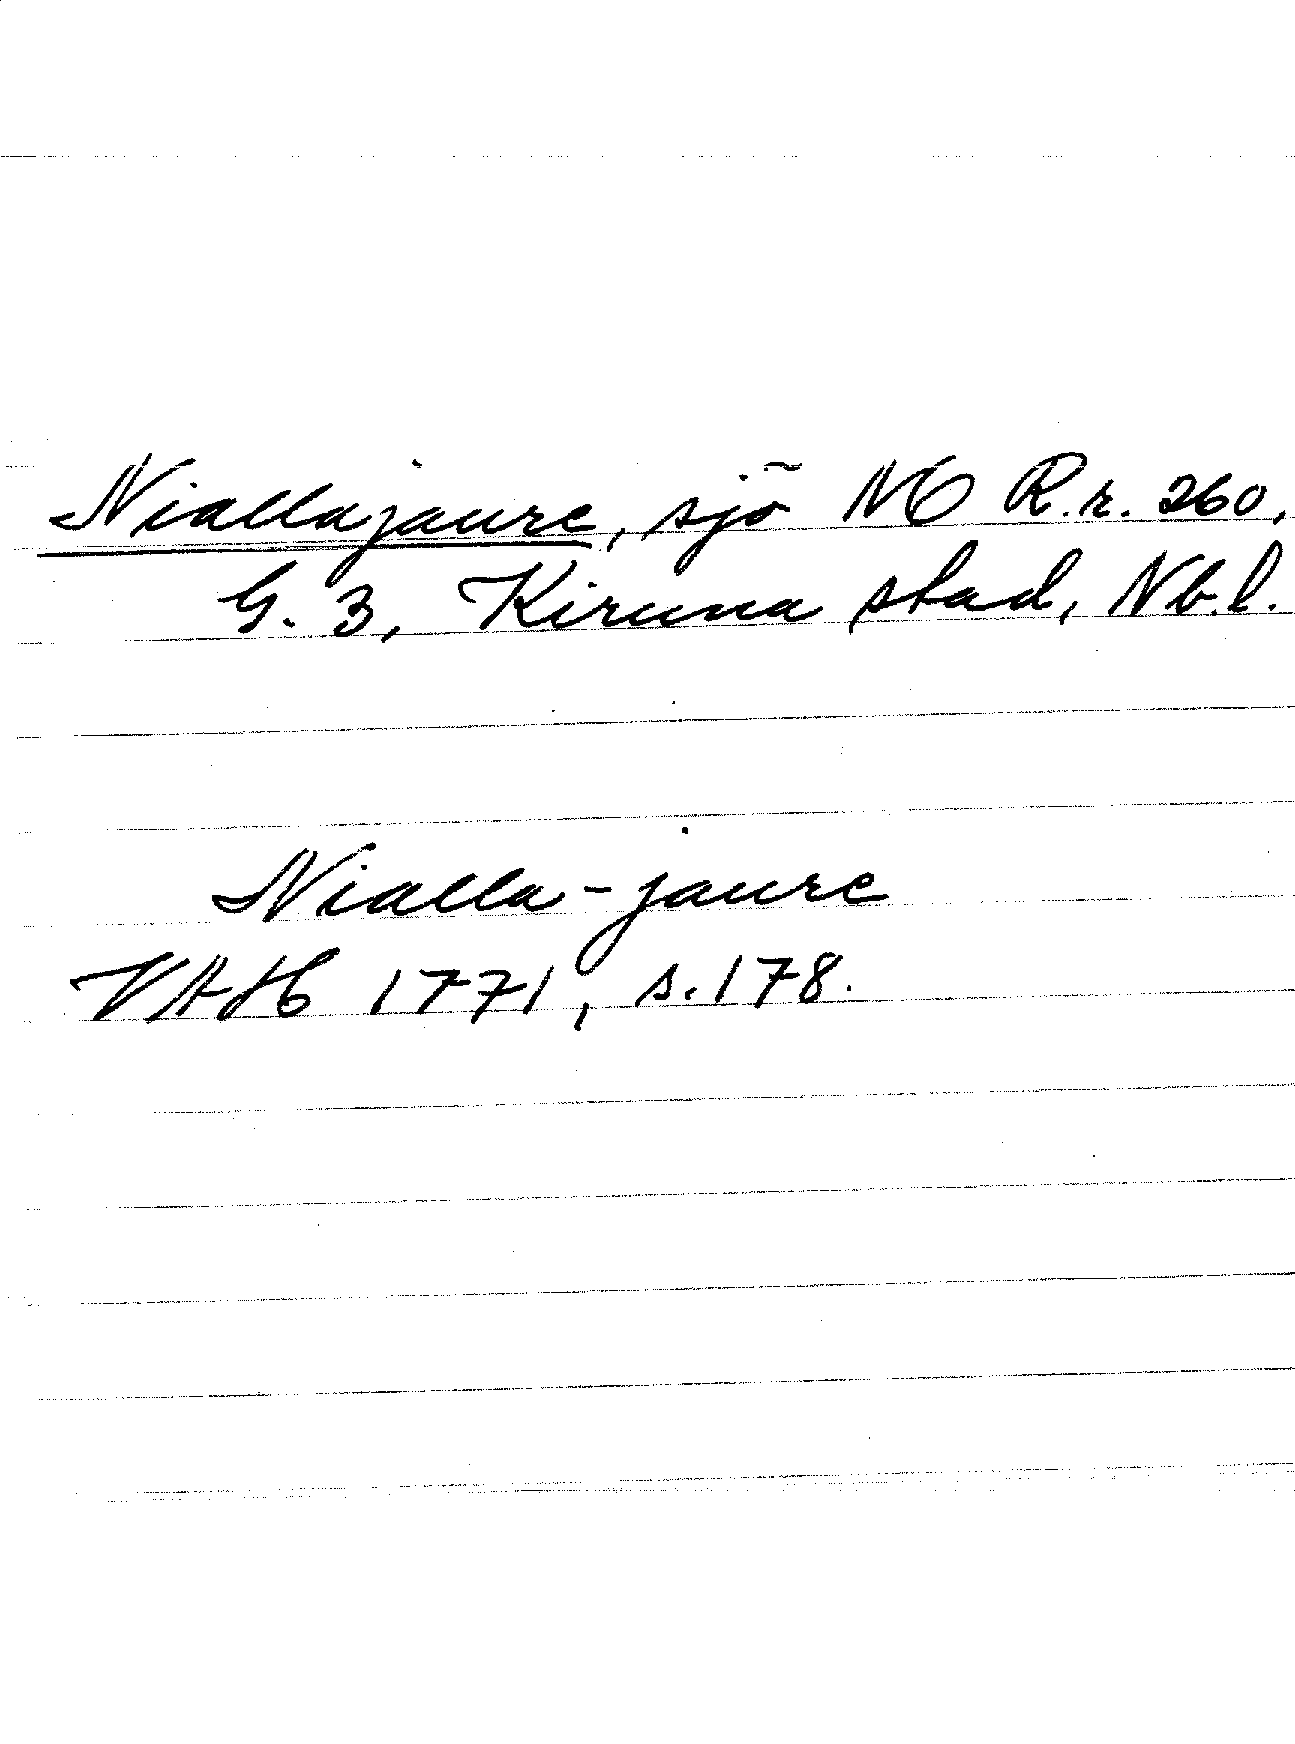 Niallajaure, sjö NO R.r. 260,
G. 3, Kiruna stad, Nb.l.
Nialla-jaure
VAH 1771, s. 178.